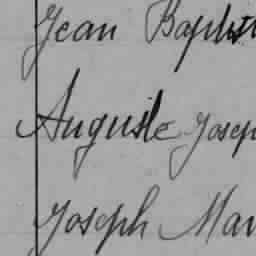 Jean Baptist
Auguste Josep
Joseph Mar